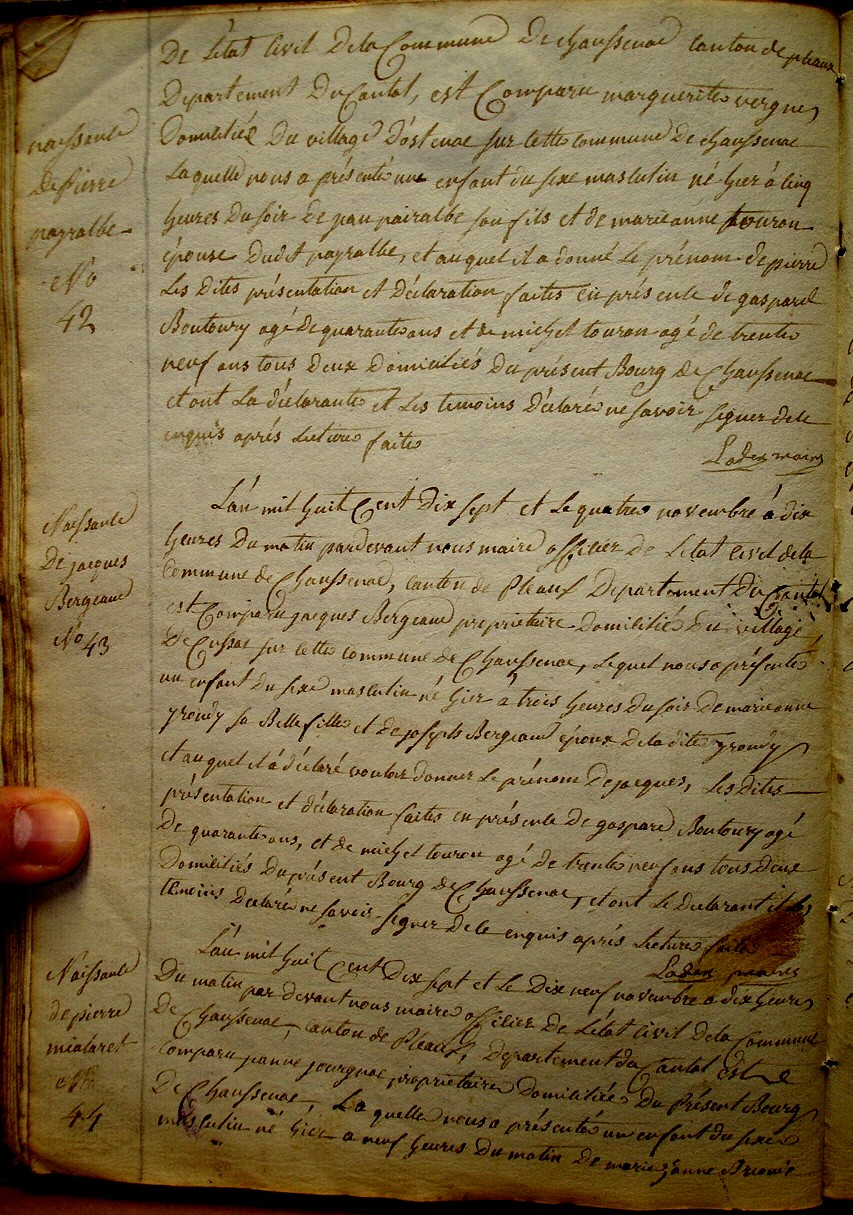 De L'état Civil De la Commune De chaussenac canton de pleaux
Departement Du Cantal, est Comparu marguerite vergne
Domiciliée Du village D'ostenac sur cette commune De chaussenac
Laquelle nous a présenté un enfant du sexe masculin né hier à cinq
heures Du soir De jean pairalbe son fils et de marie anne touron
épouse Dudit payralbe, et auquel il a donné Le prénom de pierre
Les Dites présentation et Déclaration faites en présence de gaspard
Boutoury agé De quarante ans et de michel touron agé de trente
neuf ans tous Deux Domiciliés Du présent Bourg De Chaussenac
et ont La déclarante et Les temoins Déclaré ne savoir signer de ce
enquis après Lecture faite
maire
naissance
De pierre
payralbe
No
42
L'an mil huit Cent Dix sept et Le quatre novembre à dix
heures Du matin pardevant nous maire officier De L'état Civil de la
Commune de Chaussenac, canton de Pleaux Departement Du Cantal
est Comparu jacques Bergeaud propriétaire Domicilié Du village
De Cussac sur cette commune De Chaussenac, Lequel nous a présenté
un enfant du sexe masculin né hier a trois heures Du soir De marie anne
sa Belle fille et de joseph Bergeaud époux De la dite
et auquel il a déclaré vouloir donner Le prénom De jacques, Les Dites
présentation et déclaration faites en présence De gaspard Boutoury agé
De quarante ans, et de michel touron agé de trente neuf ans tous Deux
Domiciliés Du présent Bourg De Chaussenac, et ont Le Declarant et les
témoins Declaré ne savoir signer de ce enquis après Lecture faite
maire
Naissance
De jacques
Bergeaud
No 43
L'an mil huit Cent Dix sept et Le Dix neuf novembre a dix heures
Du matin par devant nous maire officier De L'état Civil De la Commune
De Chaussenac, canton de Pleaux, Departement du Cantal est
comparu jeanne jourgnac propriétaire Domiciliée Du Présent Bourg
De Chaussenac, Laquelle nous a présenté un enfant du sexe
masculin né hier a neuf heures Du matin De marie jeanne
Naissance
de pierre
mialaret
No
44